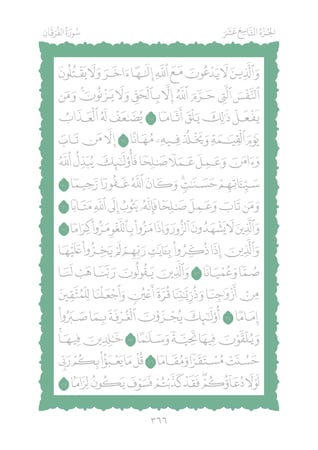 الجُزْءُ التَّاسِعَ عَشَرَ سُورَةُ الفُرْقَانِ
وَٱلَّذِينَ لَا يَدْعُونَ مَعَ ٱللَّهِ إِلَٰهًا ءَاخَرَ وَلَا يَقْتُلُونَ
ٱلنَّفْسَ ٱلَّتِي حَرَّمَ ٱللَّهُ إِلَّا بِٱلْحَقِّ وَلَا يَزْنُونَۚ وَمَن
يَفْعَلْ ذَٰلِكَ يَلْقَ أَثَامًا يُضَٰعَفْ لَهُ ٱلْعَذَابُ
يَوْمَ ٱلْقِيَٰمَةِ وَيَخْلُدْ فِيهِۦ مُهَانًا إِلَّا مَن تَابَ
وَءَامَنَ وَعَمِلَ عَمَلًا صَٰلِحًا فَأُوْلَٰٓئِكَ يُبَدِّلُ ٱللَّهُ
سَيِّـَٔاتِهِمْ حَسَنَٰتٍۗ وَكَانَ ٱللَّهُ غَفُورًا رَّحِيمًا
وَمَن تَابَ وَعَمِلَ صَٰلِحًا فَإِنَّهُۥ يَتُوبُ إِلَى ٱللَّهِ مَتَابًا
وَٱلَّذِينَ لَا يَشْهَدُونَ ٱلزُّورَ وَإِذَا مَرُّواْ بِٱللَّغْوِ مَرُّواْ كِرَامًا
وَٱلَّذِينَ إِذَا ذُكِّرُواْ بِـَٔايَٰتِ رَبِّهِمْ لَمْ يَخِرُّواْ عَلَيْهَا
صُمًّا وَعُمْيَانًا وَٱلَّذِينَ يَقُولُونَ رَبَّنَا هَبْ لَنَا
مِنْ أَزْوَٰجِنَا وَذُرِّيَّٰتِنَا قُرَّةَ أَعْيُنٍ وَٱجْعَلْنَا لِلْمُتَّقِينَ
إِمَامًا أُوْلَٰٓئِكَ يُجْزَوْنَ ٱلْغُرْفَةَ بِمَا صَبَرُواْ
وَيُلَقَّوْنَ فِيهَا تَحِيَّةً وَسَلَٰمًا خَٰلِدِينَ فِيهَاۚ
حَسُنَتْ مُسْتَقَرًّا وَمُقَامًا قُلْ مَا يَعْبَؤُاْ بِكُمْ رَبِّي
لَوْلَا دُعَآؤُكُمْۖ فَقَدْ كَذَّبْتُمْ فَسَوْفَ يَكُونُ لِزَامًا
٣٦٦